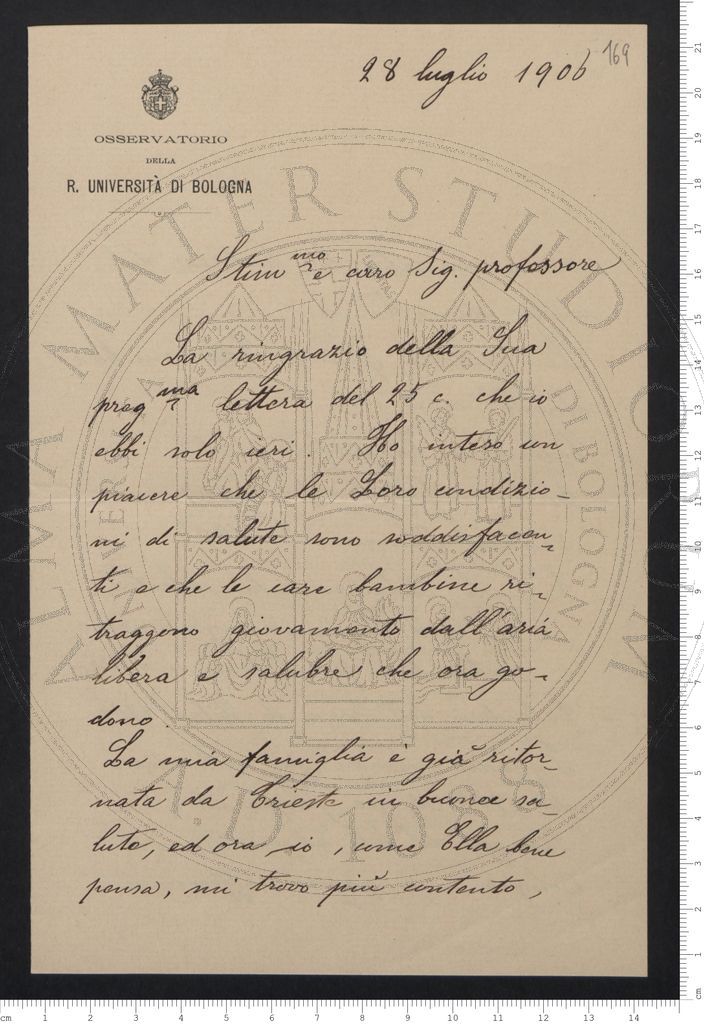 169
28 luglio 1906
OSSERVATORIO
DELLA
R. UNIVERSITÀ DI BOLOGNA
Stim mo e caro Sig. professore
La ringrazio della Sua
preg ma lettera del 25 c. che io
ebbi solo ieri. Ho inteso con
piacere che le Loro condizio-
ni di salute sono soddisfacen-
ti e che le care bambine ri-
traggono giovamento dall'aria
libera e salubre che ora go-
dono.
La mia famiglia è già ritor-
nata da Trieste in buone sa-
lute, ed ora io, come Ella bene
pensa, mi trovo più contento,
ALMA MATER STUDIORUM
UNIVERSITÀ DI BOLOGNA
A.D. 1088